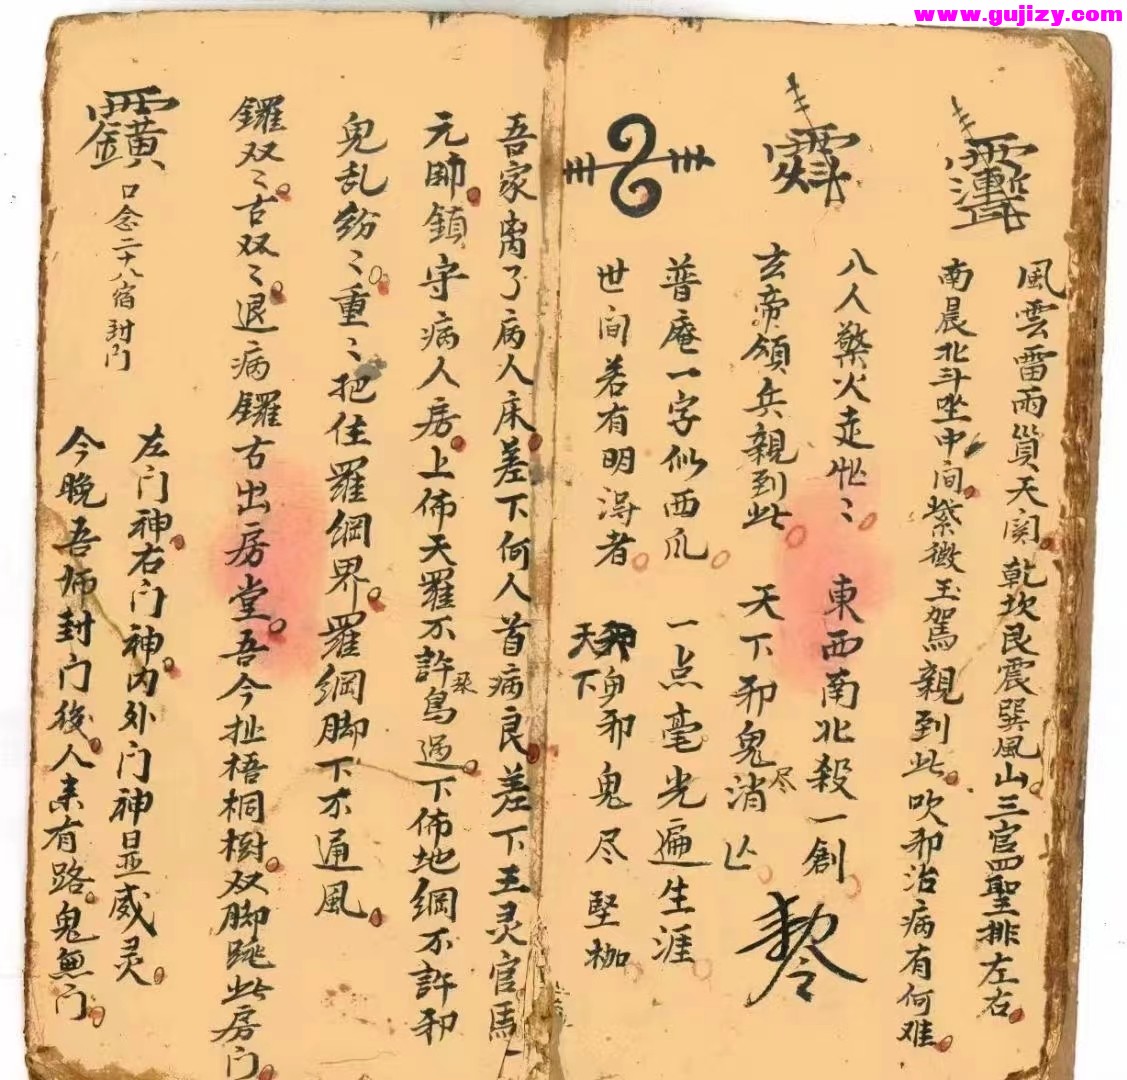 www.gujizy.com
風雲雷雨質天関乾坎艮震巽風山三官四聖排左右
南晨北斗坐中间紫薇玉駕親到此吹邪治病有何难
八人擎火走忙〻東西南北殺一創
玄帝領兵親到此天下邪鬼尽消亡
普庵一字似西瓜一点毫光遍生涯
世间若有明淂者
天下邪鬼尽堅枷
吾家离了病人床差下何人首病良差下王灵官馬
元帥鎮守病人房上佈天罗不許鳥过下佈地網不許邪
鬼乱纷〻重〻把住羅網界羅網脚下不通風
鑼双〻古双〻退病鑼古出房堂吾今扯梧桐樹双脚跳此房门
口念二十八宿封门
左门神右门神内外门神显威灵
今晚吾师封门後人来有路鬼無门